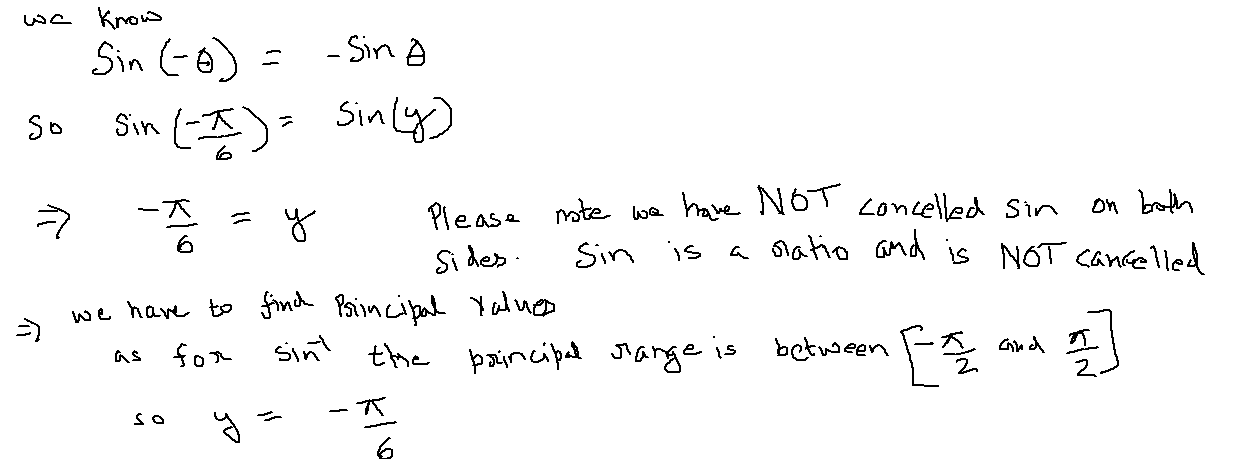 we know
Sin (-θ) = - Sin θ
So Sin (-π/6) = Sin(y)
⇒ -π/6 = y Please note we have NOT cancelled sin on both
sides. Sin is a ratio and is NOT cancelled
⇒ we have to find Principal Values
as for sin⁻¹ the principal range is between [-π/2 and π/2]
so y = -π/6